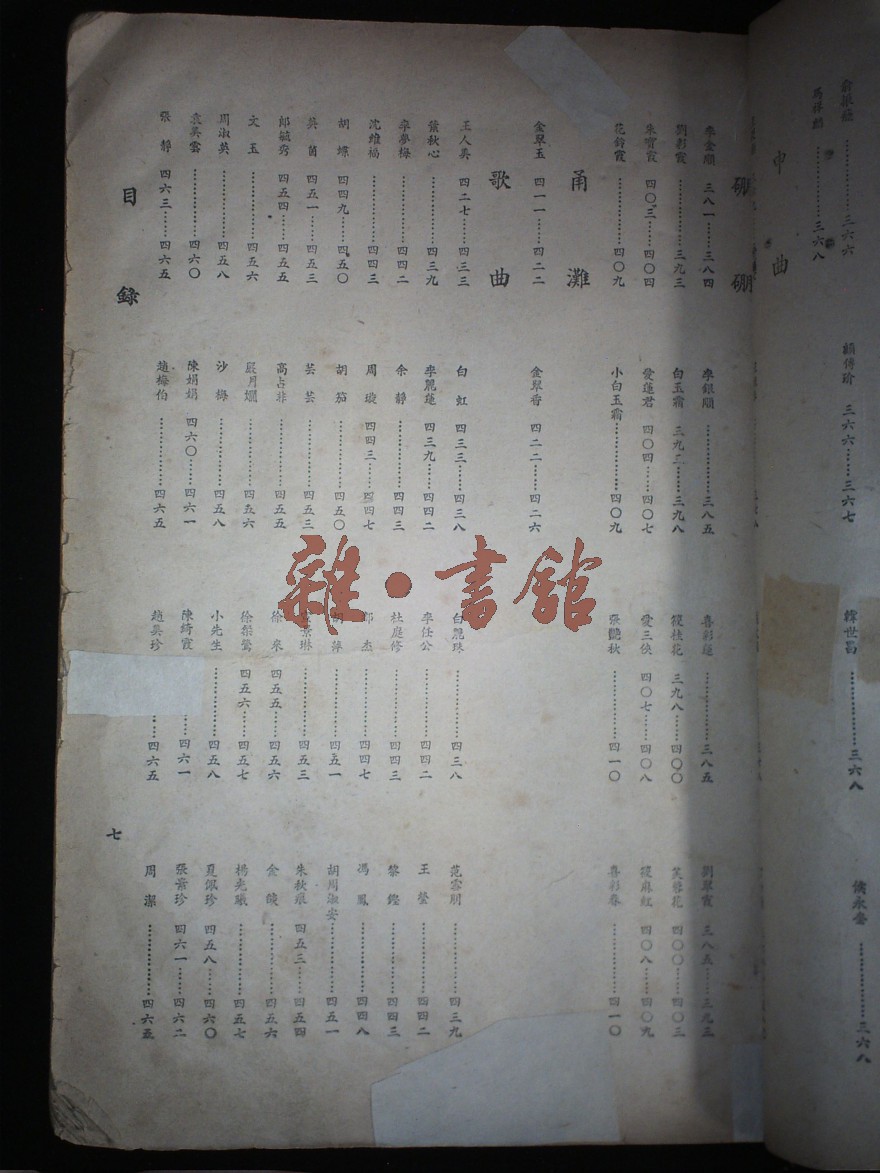 申曲
三六六
馬祥麟……三六八
顧傳瑜 三六六……三六七
韓世昌……三六八
三六八
嘣嘣
李金順 三八一……三八四
李銀順……三八五
喜彩蓮……三八五
劉翠霞 三八五……三九三
劉彩霞……三九三
白玉霜 三九二……三九八
筱桂花 三九八……四〇〇
芙蓉花 四〇〇……四〇三
朱寶霞 四〇三……四〇四
愛蓮君 四〇四……四〇七
愛三俠 四〇七……四〇八
筱麻紅 四〇八……四〇九
花鈴霞……四〇九
小白玉霜……四〇九
張艷秋……四一〇
喜彩春……四一〇
甬灘
金翠玉 四一一……四二二
金翠香 四二二……四二六
歌曲
王人美 四二七……四三三
白虹 四三三……四三八
白麗珠……四三八
范雪朋……四三九
葉秋心……四三九
李麗蓮 四三九……四四二
李任公……四四二
王瑩……四四二
李夢梅……四四二
余靜……四四三
杜庭修……四四三
黎鏗……四四三
沈維楊……四四三
周璇 四四三……四四七
郎杰……四四七
馮鳳……四四八
胡蝶 四四九……四五〇
胡笳……四五〇
胡萍……四五一
胡周淑安……四五一
英茵 四五一……四五三
芸芸……四五三
宣景琳……四五三
朱秋痕 四五三……四五四
郎毓秀 四五四……四五五
高占非……四五五
徐來 四五五……四五六
金燄……四五六
文玉……四五六
嚴月嫻……四五六
徐粲鶯 四五六……四五七
楊光曦……四五七
周淑英……四五八
沙梅……四五八
小先生……四五八
夏佩珍 四五八……四六〇
袁美雲……四六〇
陳娟娟 四六〇……四六一
陳綺霞……四六一
張葉珍 四六一……四六二
張靜 四六三……四六五
趙梅伯……四六五
趙美珍……四六五
周潔……四六五
目錄
七
雜·書館